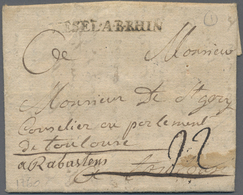 ESEL A BRHIN
De Monsieur
Monsieur De St gory
Conselier au perlement
de toulouse
a Rabastens 22
1760